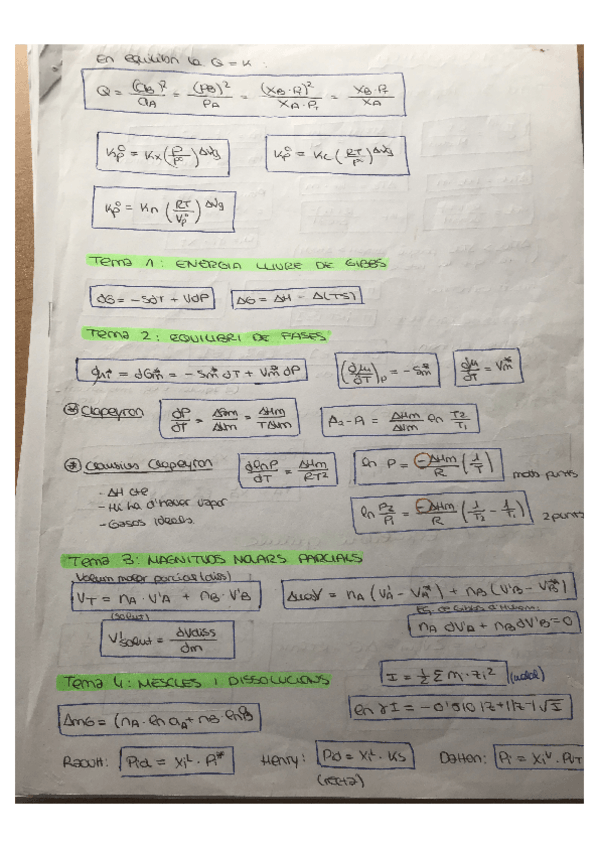 En equilibri la Q = K :
Q = (aB)²/aA = (PB)²/PA = (XB·Pt)²/XA·Pt = XB·Pt/XA
Kp° = Kx (P/P°)^Δνg   Kp° = Kc (RT/P°)^Δνg
Kp° = Kn (RT/VP°)^Δνg
Tema 1: ENERGIA LLIURE DE GIBBS
dG = -SdT + VdP   ΔG = ΔH - Δ(TS)
Tema 2: EQUILIBRI DE FASES
dμ* = dGm* = -Sm* dT + Vm* dP   (dμ/dT)P = -Sm*   dμ/dT = Vm*
* Clapeyron   dP/dT = ΔSm/ΔVm = ΔHm/TΔVm   P2 - P1 = ΔHm/ΔVm ln T2/T1
* Clausius Clapeyron   dlnP/dT = ΔHm/RT²   ln P = -ΔHm/R (1/T)   molts punts
- ΔH cte
- Hi ha d'haver vapor
- Gasos ideals
ln P2/P1 = -ΔHm/R (1/T2 - 1/T1)   2 punts
Tema 3: MAGNITUDS MOLARS PARCIALS
Volum molar parcial (diss)
VT = nA · V'A + nB · V'B   nA (VA' - VA*) + nB (V'B - VB*)
(solut)
V'solut = dVdiss/dm   nA dV'A + nB dV'B = 0
Tema 4: MESCLES I DISSOLUCIONS   I = 1/2 Σ mi · zi²
ΔmG = (nA · ln aA + nB · ln   ln γI = -0'510 |z+||z-| √I
Raoult: Pid = XiL · Pi*   Henry: Pid = XiL · KS   Dalton: Pi = XiV · PT
(recta)